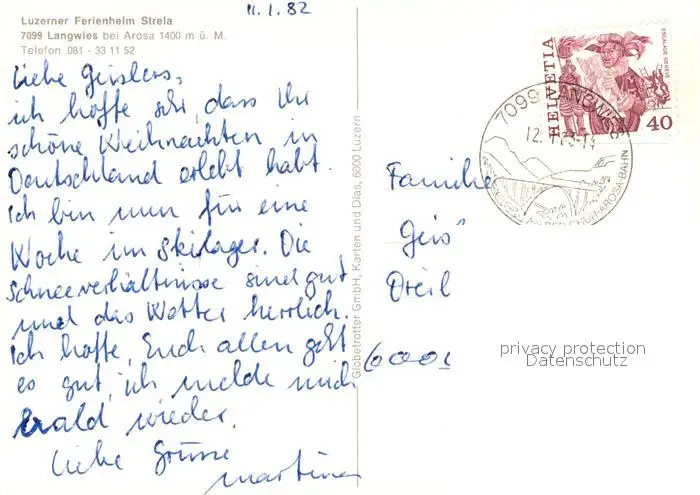 11.1.82
Luzerner Ferienheim Strela
7099 Langwies bei Arosa 1400 m ü. M.
Telefon 081 - 33 11 52
Liebe Geisslers,
ich hoffe sehr, dass Ihr
schöne Weihnachten in
Deutschland erlebt habt.
Ich bin nun für eine
Woche im Skilager. Die
Schneeverhältnisse sind gut
und das Wetter herrlich.
Ich hoffe, Euch allen geht
es gut, ich melde mich
bald wieder.
Liebe Grüsse
Martina
Globetrotter GmbH, Karten und Dias, 6000 Luzern
Familie
Geis
Dreil
600
HELVETIA
ESCALADE GENÈVE
40
7099 LANGWIES
12.
AN DER CHUR-AROSA-BAHN
privacy protection
Datenschutz